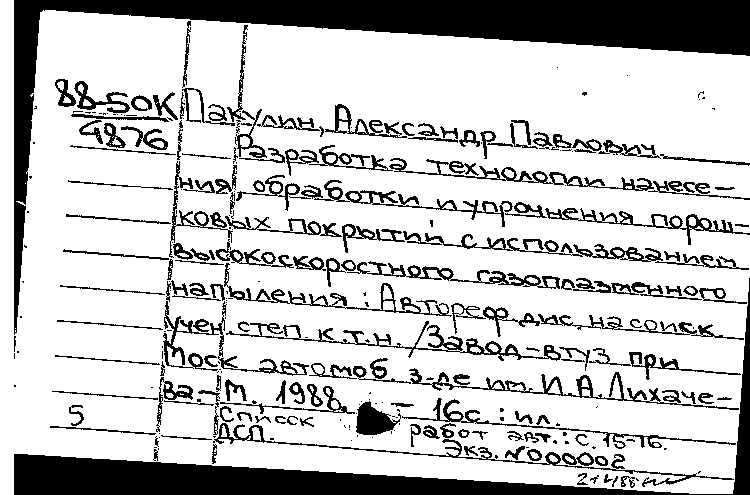 88-50К Пакулин, Александр Павлович.
4876 Разработка технологии нанесе-
ния, обработки и упрочнения порош-
ковых покрытий с использованием
высокоскоростного газоплазменного
напыления : Автореф. дис. на соиск.
учен. степ. к.т.н. / Завод-втуз при
Моск. автомоб. з-де им. И.А. Лихаче-
ва. - М., 1988. - 16с. : ил.
5 Список работ авт.: с. 15-16.
ДСП. Экз. №000002.